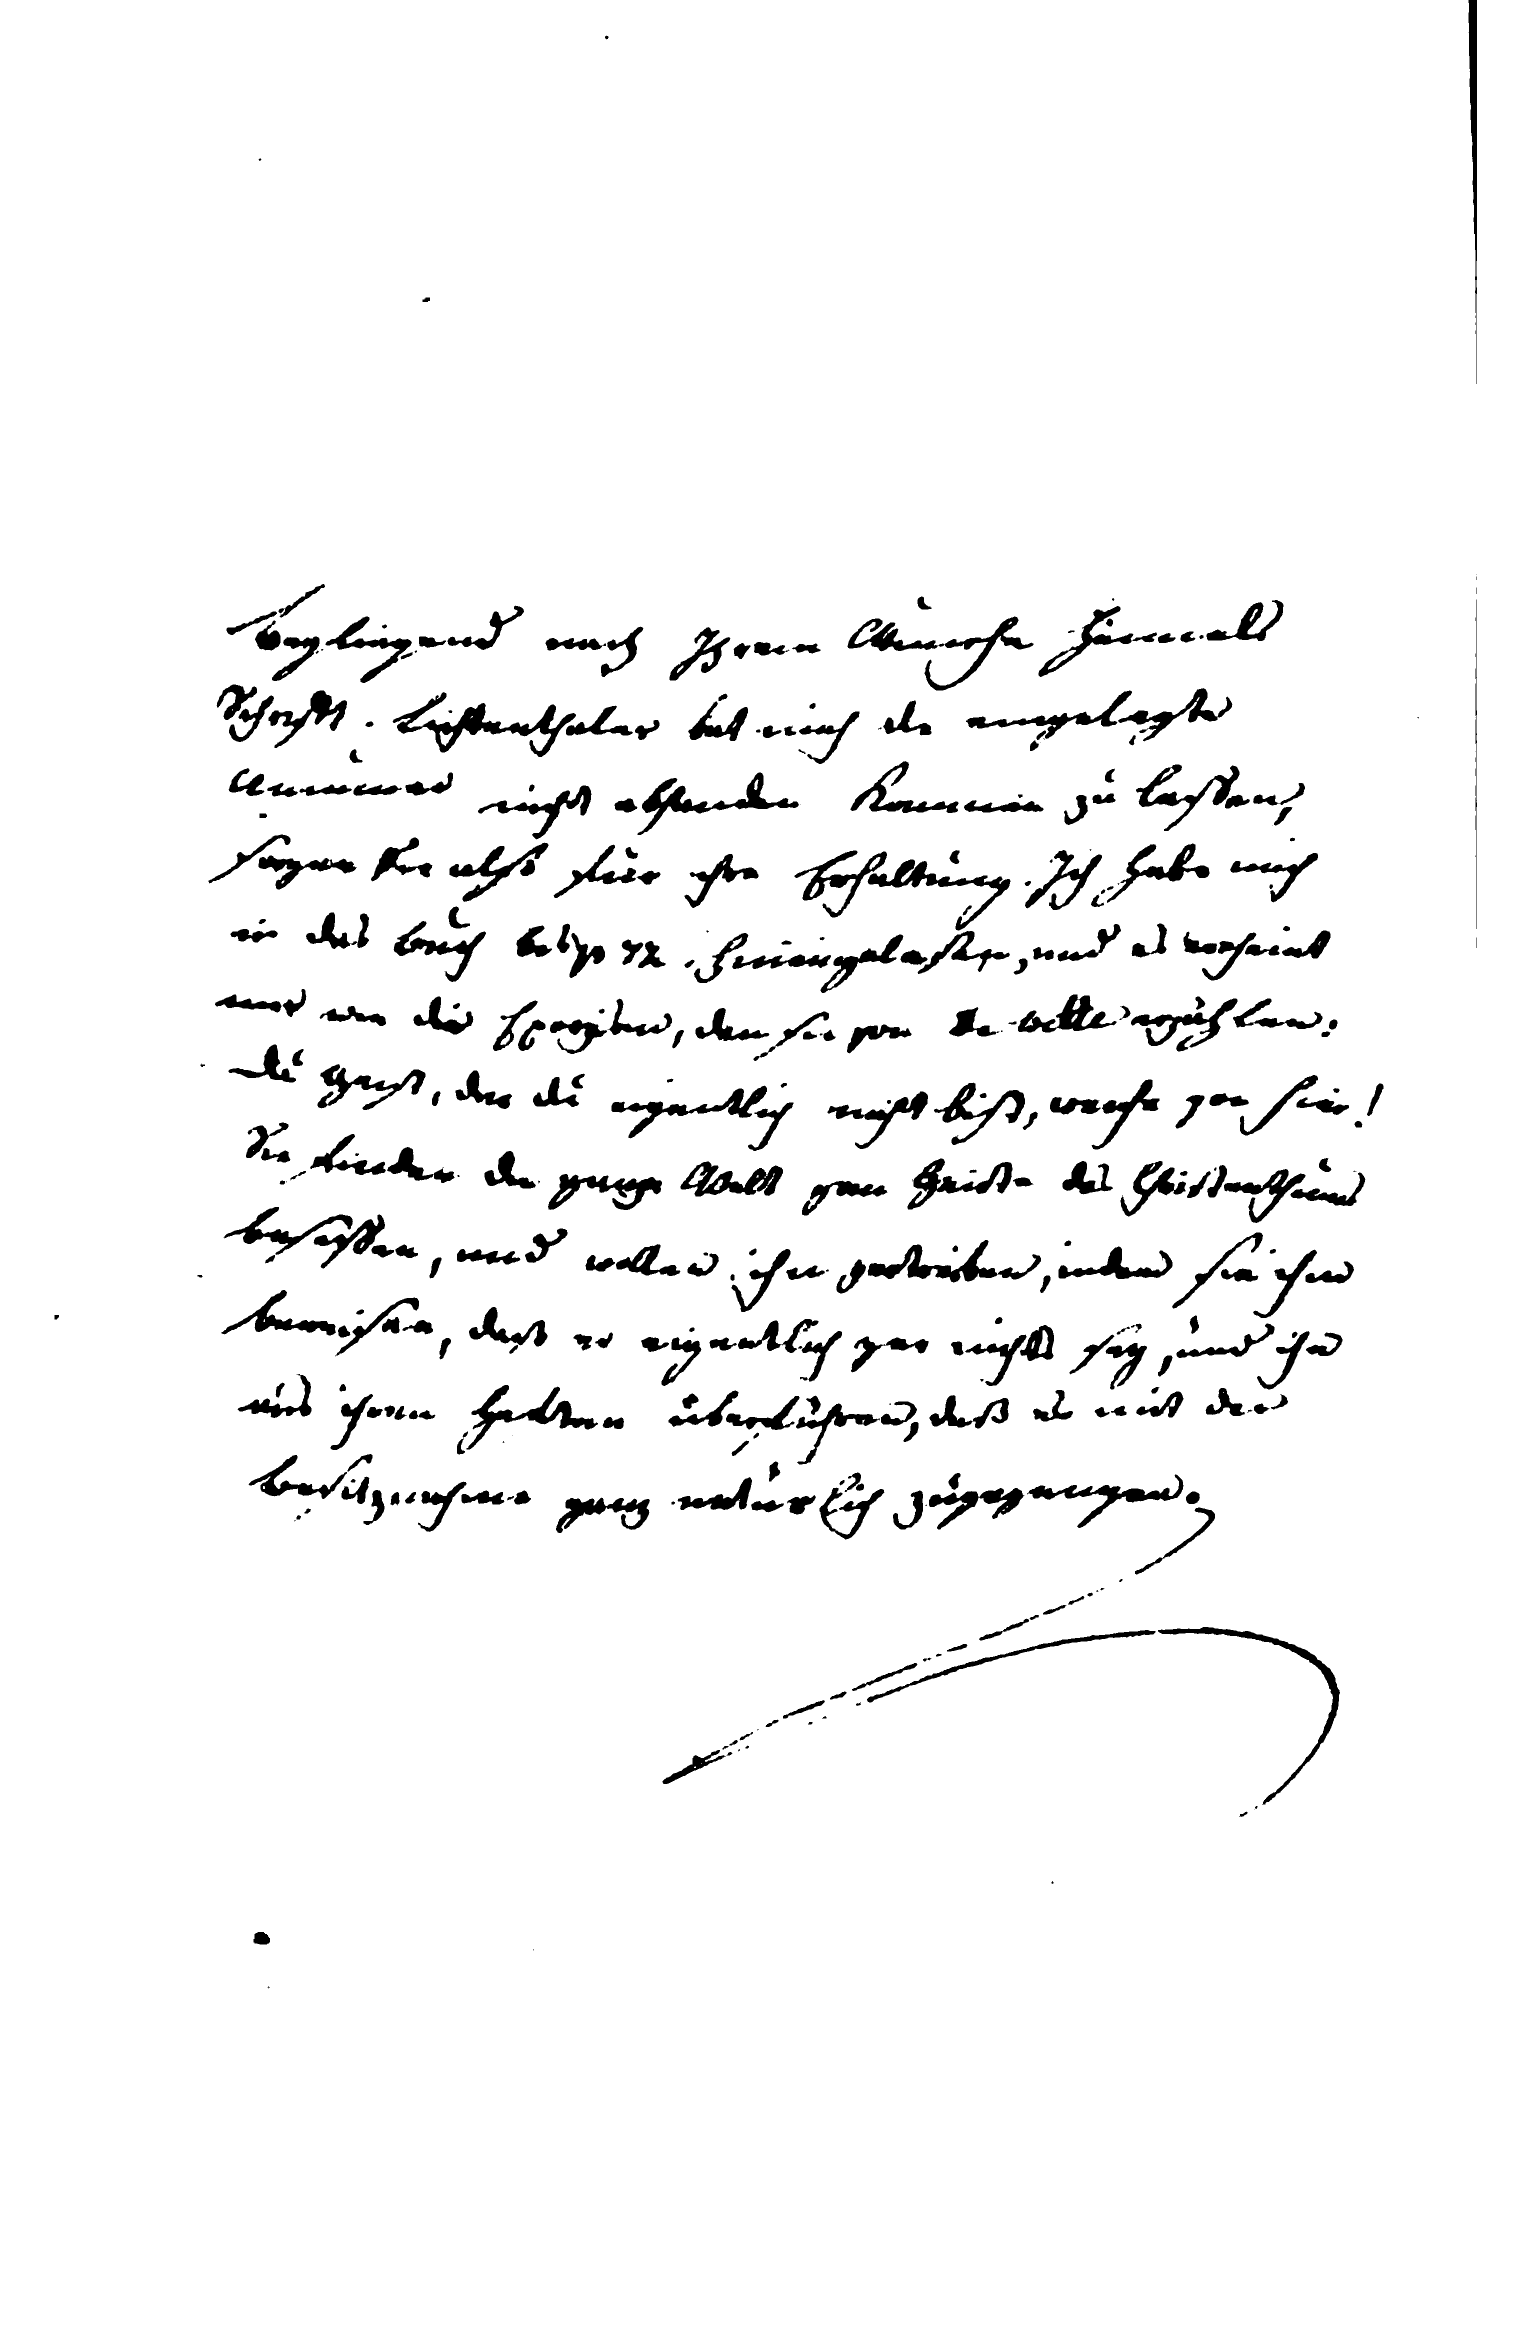 Beyliegend nach Ihrem Wunsche Himmels
Schrift. Lichtenthaler bat mich die eingelegte
Nummer nicht abhanden kommen zu lassen,
sorgen Sie also für ihre Erhaltung. Ich habe mich
in das Buch bis p 72. hineingelesen, und es scheint
mir wie die Exorzismen, den sie von De Wette erzählen:
Du Geist, der du eigentlich nicht bist, weiche von hier!
Sie finden die ganze Welt vom Geiste des Christenthums
besessen, und wollen ihn vertreiben, indem sie ihm
beweisen, daß er eigentlich gar nichts sey, und ihn
aus ihren Heften überführen, daß es mit der
Besitznahme ganz natürlich zugegangen.